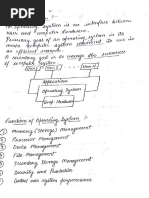 An operating system is an interface between
user and computer hardware.
Primary goal of an operating system is to
make computer system convenient to use in
an efficient manner.
A secondary goal is to manage the resources
of computer system.
User 1
User N
Application
Operating System
Functions of Operating System :-
① Memory (Storage) Management
② Processor Management
③ Device Management
④ File Management
⑤ Secondary Storage Management
⑥ Security and Protection
⑦ Control over system performance